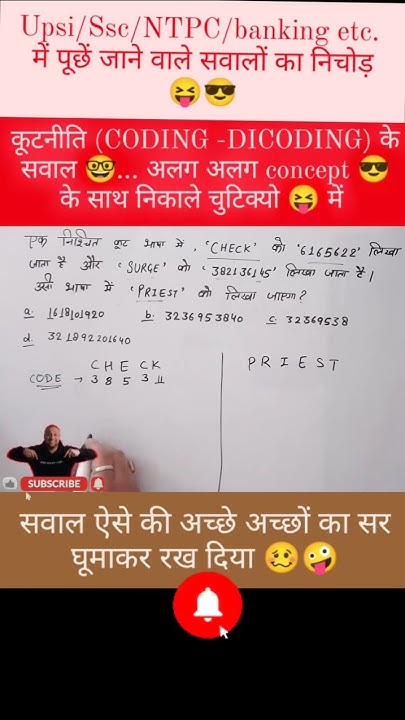 Upsi/Ssc/NTPC/banking etc.
में पूछें जाने वाले सवालों का निचोड़
😝😎
कूटनीति (CODING -DICODING) के
सवाल 🤓... अलग अलग concept 😎
के साथ निकाले चुटिक्यो 😝 में
एक निश्चित कूट भाषा में, 'CHECK' को '6165622' लिखा
जाता है और 'SURGE' को '382136145' लिखा जाता है।
उसी भाषा में 'PRIEST' को लिखा जाएगा?
a. 1618101920 b. 3236953840 c. 32369538
d. 321892201640
C H E C K
CODE → 3 8 5 3 11
P R I E S T
SUBSCRIBE
सवाल ऐसे की अच्छे अच्छों का सर
घूमाकर रख दिया 🥴🤪